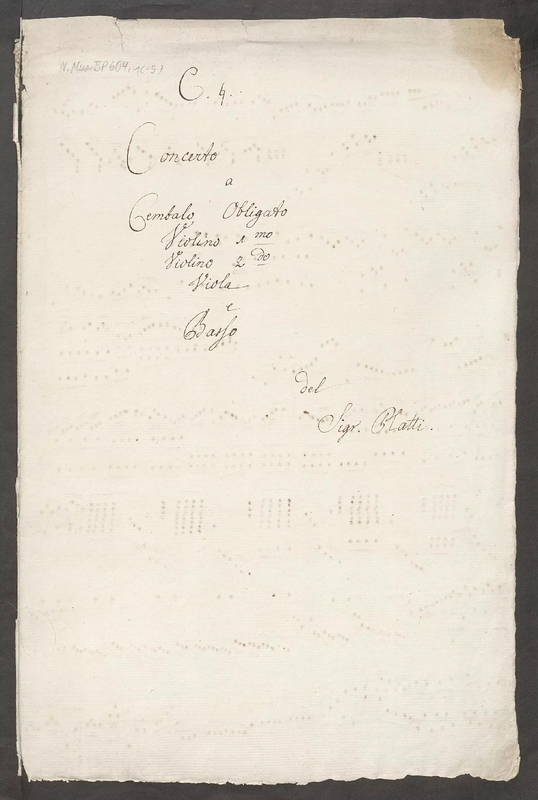 N. Mus. BP 604, 1(-5)
C. 4.
Concerto
a
Cembalo Obligato
Violino 1 mo
Violino 2 do
Viola
e
Basso
del
Sigr. Platti.